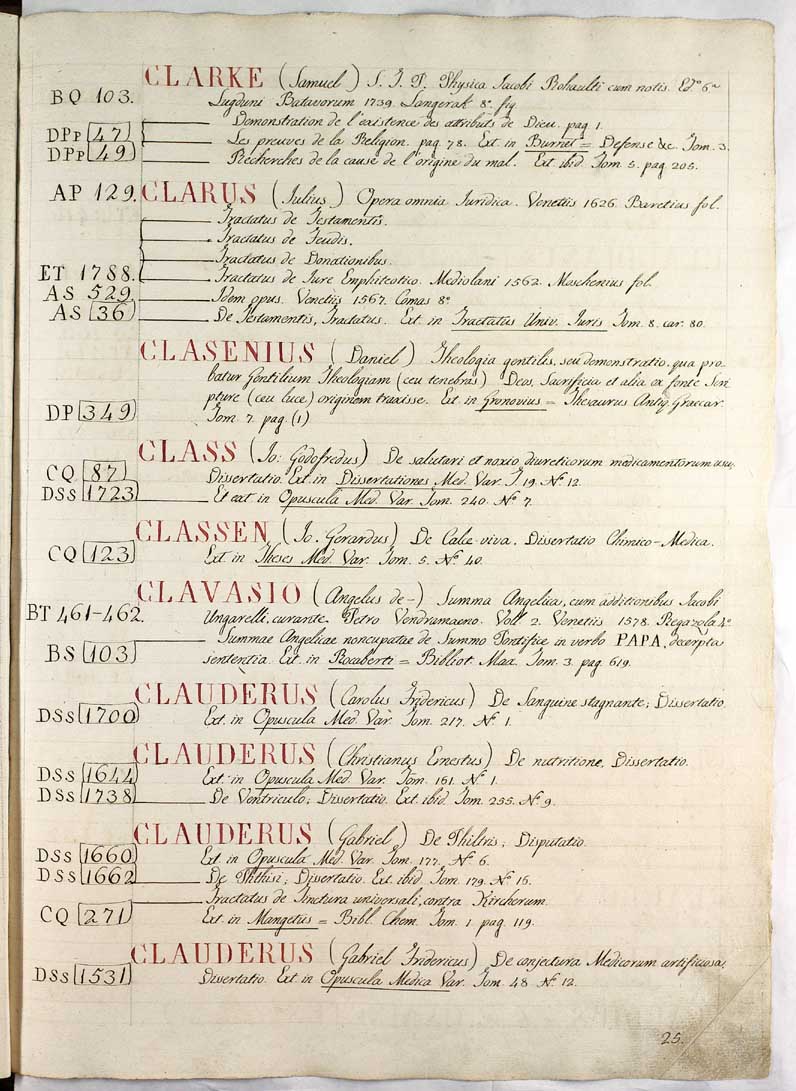 CLARKE (Samuel) S. J. P. Physica Jacobi Rohaulti cum notis. Edº 6ª
BQ 103. Lugduni Batavorum 1739. Langerak 8º fig
Demonstration de l'existence des attributs de Dieu. pag 1.
DPp 47 Les preuves de la Religion. pag 78. Ext. in Burnet = Defense &c. Tom. 3.
DPp 49 Recherches de la cause de l'origine du mal. Ext ibid. Tom. 5. pag 205.
AP 129. CLARUS (Julius) Opera omnia Juridica. Venetiis 1626. Baretius fol.
Tractatus de Testamentis.
Tractatus de Feudis.
Tractatus de Donationibus.
ET 1788. Tractatus de Jure Emphiteotico. Mediolani 1562. Moschenius fol.
AS 529 Idem opus. Venetiis 1567. Comas 8º
AS 36 De Testamentis, Tractatus. Ext. in Tractatus Univ. Juris Tom. 8. car. 80.
CLASENIUS (Daniel) Theologia gentilis, seu demonstratio, qua pro-
batur Gentilium Theologiam (ceu tenebras) Deos, Sacrificia et alia ex fonte Scri
DP 349 pture (ceu luce) originem traxisse. Ext. in Gronovius = Thesaurus Antiq. Graecar.
Tom. 7. pag. (1)
CLASS (Jo: Godofredus) De salutari et noxio diureticorum medicamentorum usu,
CQ 87 Dissertatio. Ext. in Dissertationes Med. Var. T. 19. Nº 12
DSs 1723 Et ext in Opuscula Med. Var. Tom. 240. Nº 7.
CLASSEN (Jo. Gerardus) De Calce viva. Dissertatio Chimico-Medica.
CQ 123 Ext in Theses Med. Var. Tom. 5. Nº 40.
CLAVASIO (Angelus de-) Summa Angelica, cum additionibus Jacobi
BT 461-462. Ungarelli, curante Petro Vendramaeno. Voll 2. Venetiis 1578. Regazola 4º
Summae Angelicae noncupatae de Summo Pontifice in verbo PAPA, decerpta
BS 103 sententia. Ext. in Rocaberti = Bibliot. Max. Tom. 3. pag 619.
CLAUDERUS (Carolus Fridericus) De Sanguine stagnante; Dissertatio.
DSs 1700 Ext. in Opuscula Med. Var. Tom. 217. Nº 1.
CLAUDERUS (Christianus Ernestus) De nutritione, Dissertatio.
DSs 1644 Ext. in Opuscula Med. Var. Tom. 161. Nº 1.
DSs 1738 De Ventriculo; Dissertatio. Ext. ibid. Tom. 255. Nº 9.
CLAUDERUS (Gabriel) De Philtris; Disputatio.
DSs 1660 Ext. in Opuscula Med. Var. Tom. 177. Nº 6.
DSs 1662 De Phthisi; Dissertatio. Ext. ibid. Tom. 179. Nº 15.
Tractatus de Tinctura universali, contra Kircherum.
CQ 271 Ext. in Mangetus = Bibl. Chem. Tom. 1. pag. 119.
CLAUDERUS (Gabriel Fridericus) De conjectura Medicorum artificiosa,
DSs 1531 Dissertatio. Ext in Opuscula Medica Var. Tom. 48 Nº 12.
25.